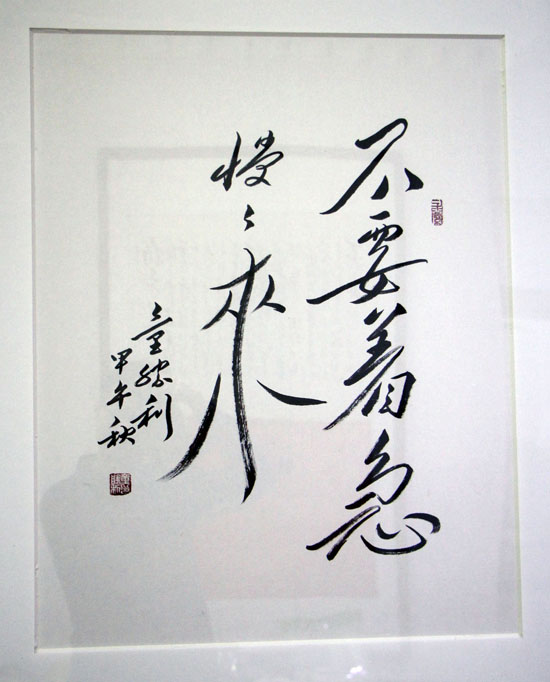 不要着急
慢々來
童勝利
甲午秋